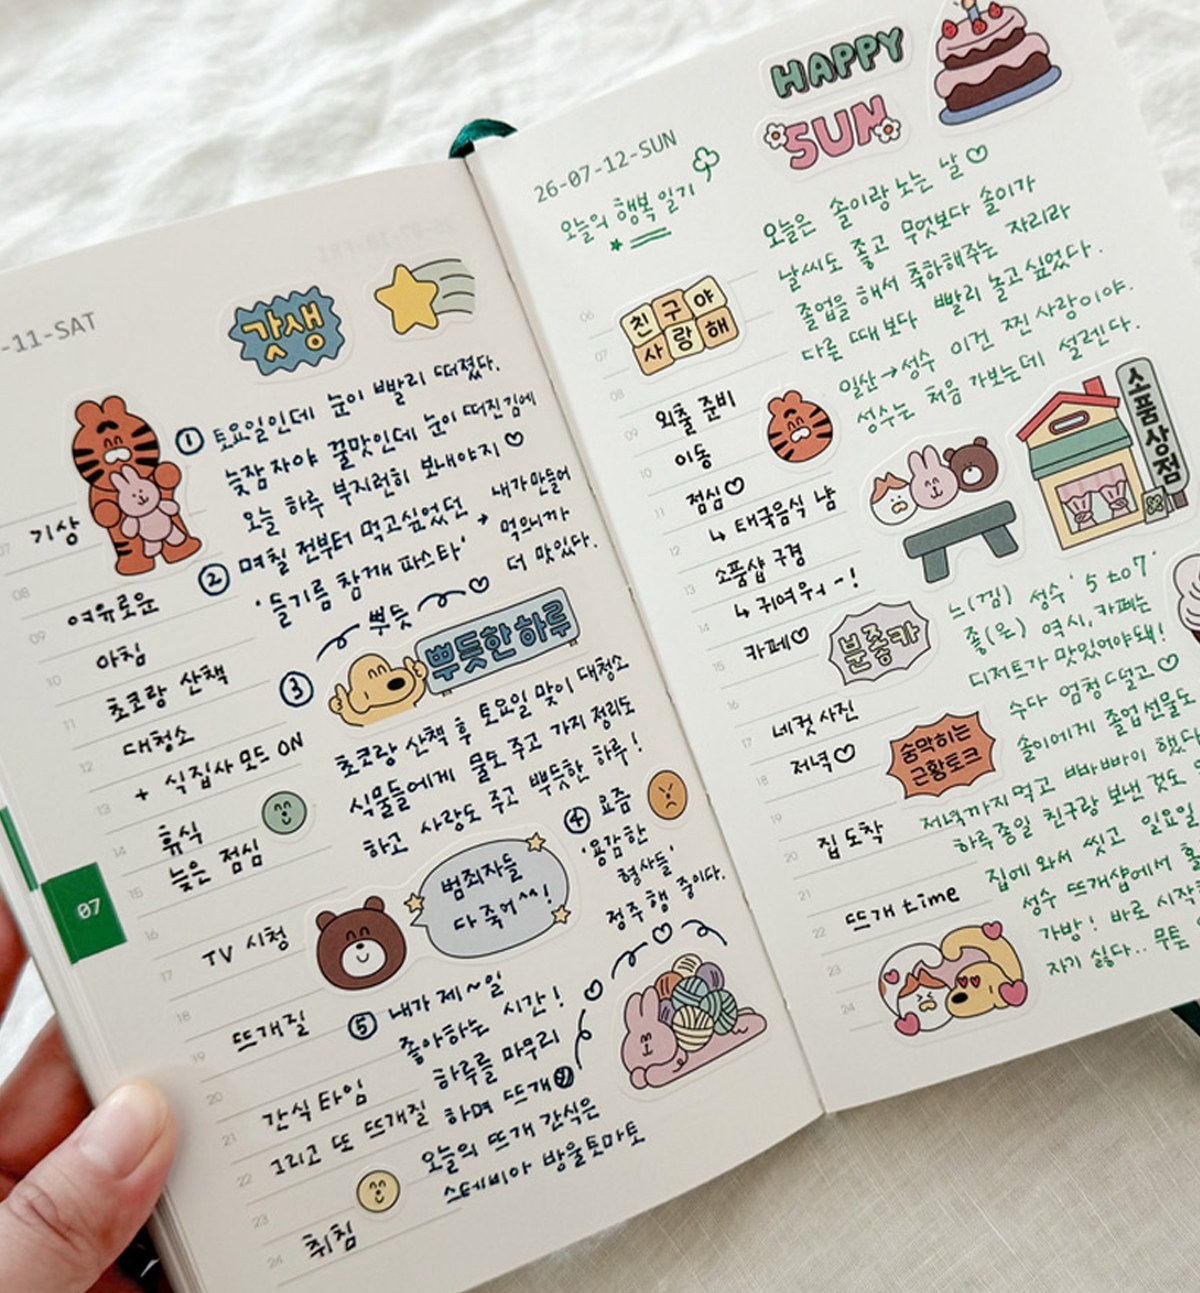 -11-SAT
갓생
① 토요일인데 눈이 빨리 떠졌다.
늦잠 자야 꿀맛인데 눈이 떠진김에
오늘 하루 부지런히 보내야지♡
② 며칠 전부터 먹고싶었던
'들기름 참깨 파스타'
→ 내가 만들어
먹으니까
더 맛있다.
뿌듯
③
뿌듯한 하루
초코랑 산책 후 토요일 맞이 대청소
식물들에게 물도 주고 가지 정리도
하고 사랑도 주고 뿌듯한 하루!
④ 요즘
'용감한
형사들'
정주행 중이다.
범죄자들
다 죽어^^!
⑤ 내가 제~일
좋아하는 시간!
하루를 마무리
하며 뜨개
오늘의 뜨개 간식은
스테비아 방울토마토
07
기상
08
여유로운
09
아침
10
초코랑 산책
11
대청소
12
+ 식집사 모드 ON
13
휴식
14
늦은 점심
15
16
TV 시청
17
18
뜨개질
19
20
간식 타임
21
그리고 또 뜨개질
22
23
취침
24
07
HAPPY
SUN
26-07-12-SUN
오늘의 행복 일기
오늘은 솔이랑 노는 날♡
날씨도 좋고 무엇보다 솔이가
졸업을 해서 축하해주는 자리라
다른 때보다 빨리 놀고싶었다.
일산→성수 이건 찐 사랑이야.
성수는 처음 가보는데 설렌다.
친구야
사랑해
소품상점
06
07
08
외출 준비
09
이동
10
점심♡
11
↳ 태국음식 냠
12
소품샵 구경
13
↳ 귀여워-!
14
카페♡
15
분좋카
16
네컷 사진
17
저녁♡
18
숨막히는
근황토크
19
집 도착
20
21
뜨개 time
22
23
24
느(낌) 성수 '5 to 7'
좋(은) 역시, 카페는
디저트가 맛있어야돼!
수다 엄청 떨고♡
솔이에게 졸업선물도
저녁까지 먹고 빠빠이 했다
하루종일 친구랑 보낸 것도
집에 와서 씻고 일요일
성수 뜨개샵에서
가방! 바로 시작
자기 싫다..